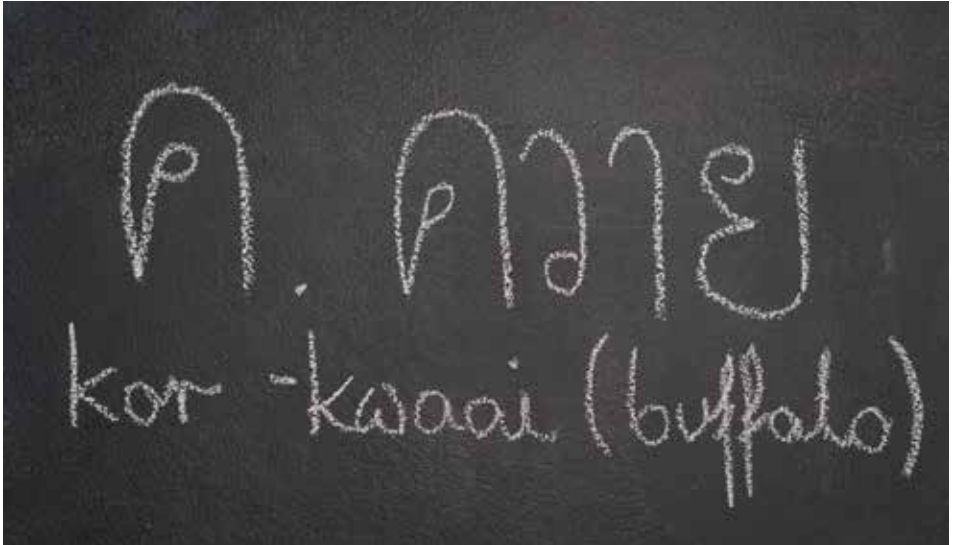 ค. ควาย
kor -kwaai (buffalo)